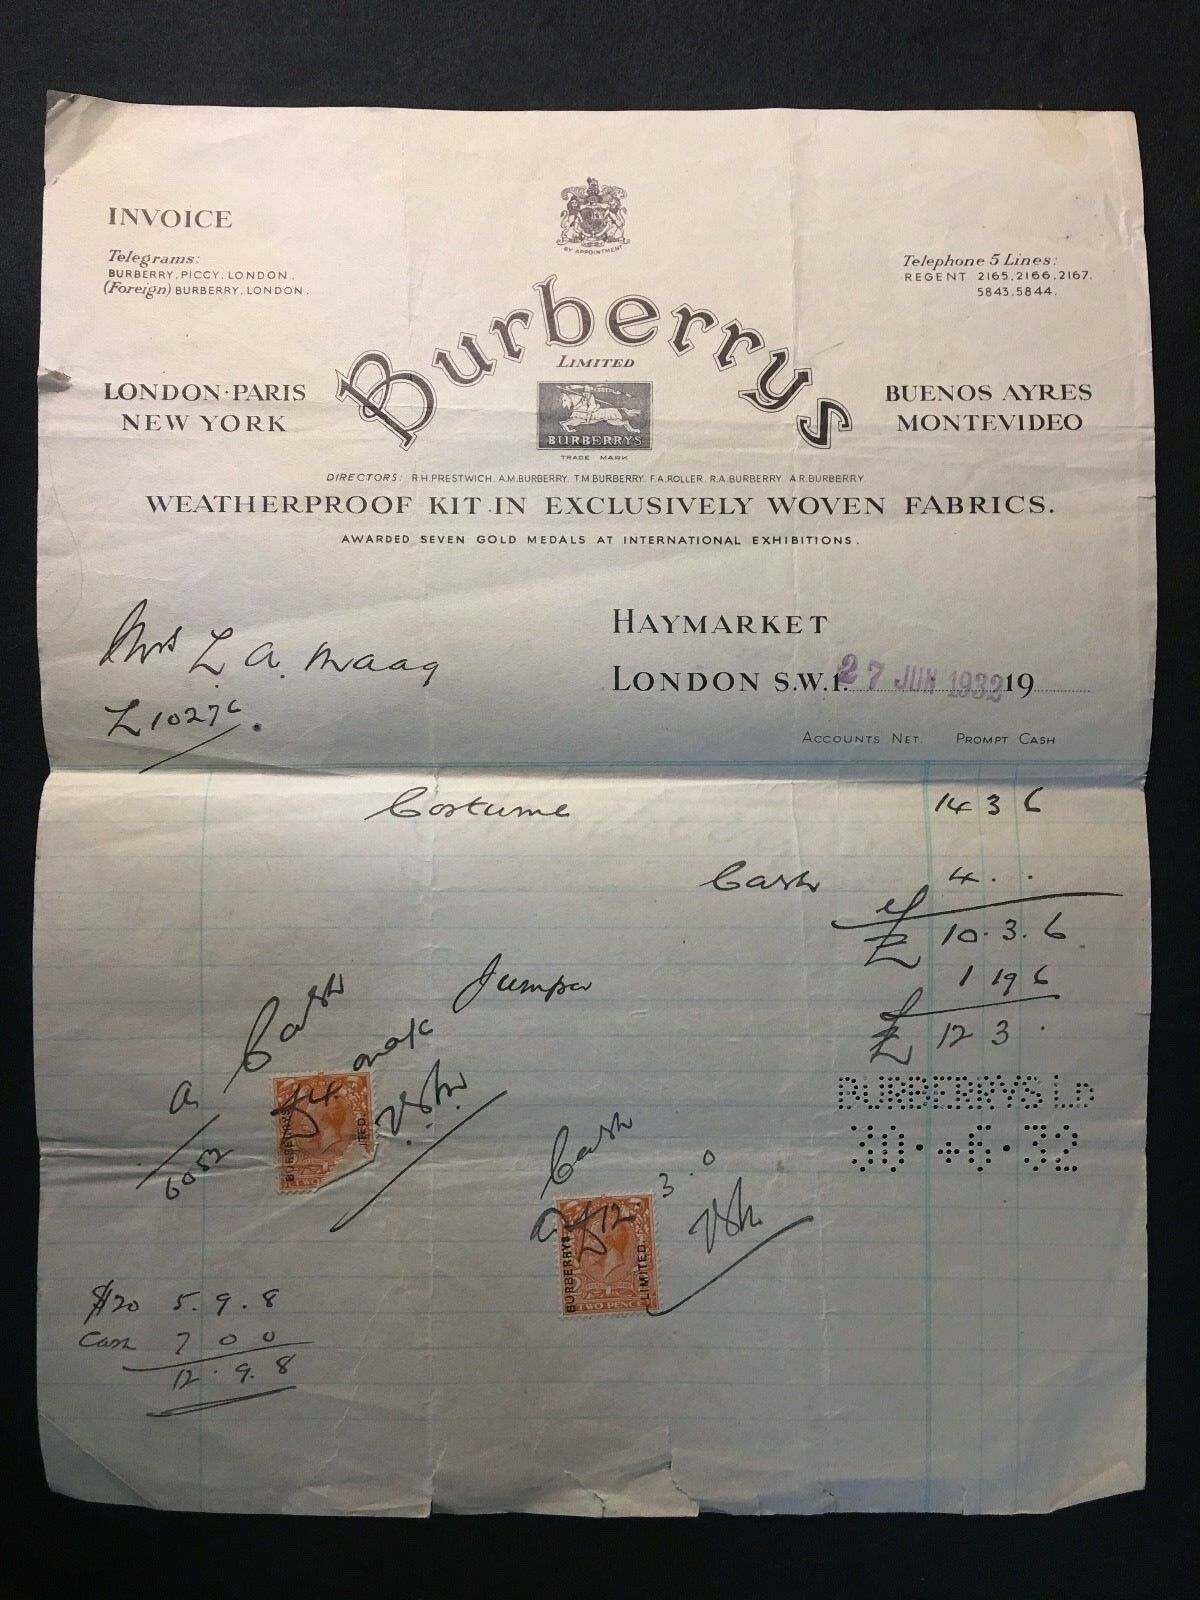 INVOICE
Telegrams:
BURBERRY, PICCY, LONDON.
(Foreign) BURBERRY, LONDON.
BY APPOINTMENT
Telephone 5 Lines:
REGENT 2165, 2166, 2167.
5843, 5844.
Burberrys
LIMITED
LONDON · PARIS
NEW YORK
BURBERRYS
TRADE MARK
BUENOS AYRES
MONTEVIDEO
DIRECTORS: R.H. PRESTWICH. A.M. BURBERRY. T.M. BURBERRY. F.A. ROLLER. R.A. BURBERRY. A.R. BURBERRY.
WEATHERPROOF KIT IN EXCLUSIVELY WOVEN FABRICS.
AWARDED SEVEN GOLD MEDALS AT INTERNATIONAL EXHIBITIONS.
Mrs L. A. Maag
HAYMARKET
LONDON S.W.1. 27 JUN 1932 19
L 10276.
ACCOUNTS NET. PROMPT CASH
Costume 14 3 6
Cash 4 . .
£ 10. 3. 6
Jumper 1 19 6
£ 12 3 .
Cash
a £4
6052
BURBERRYS
TWO
BURBERRYS LD
30·+6·32
Cash
£12. 3. 0
BURBERRYS LIMITED
TWO PENCE
$20 5. 9. 8
Cash 7 0 0
12. 9. 8